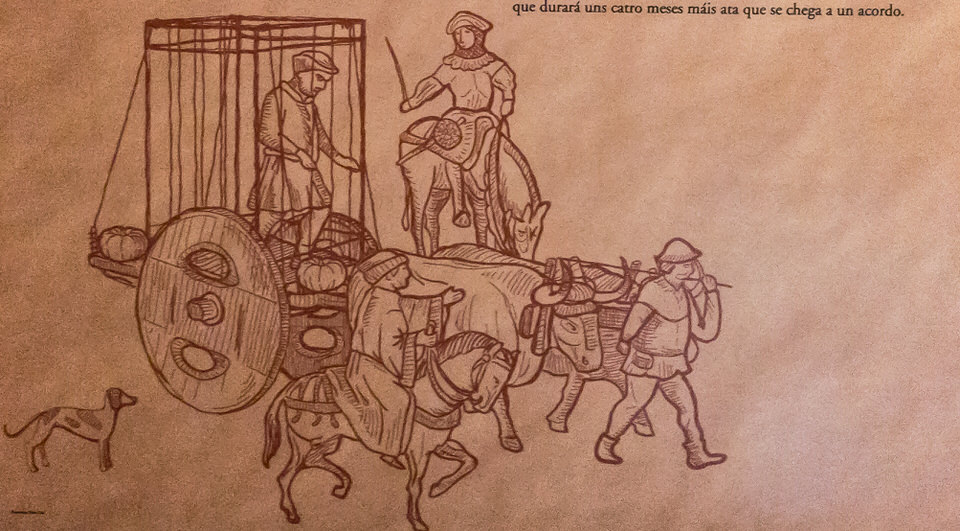 que durará uns catro meses máis ata que se chega a un acordo.